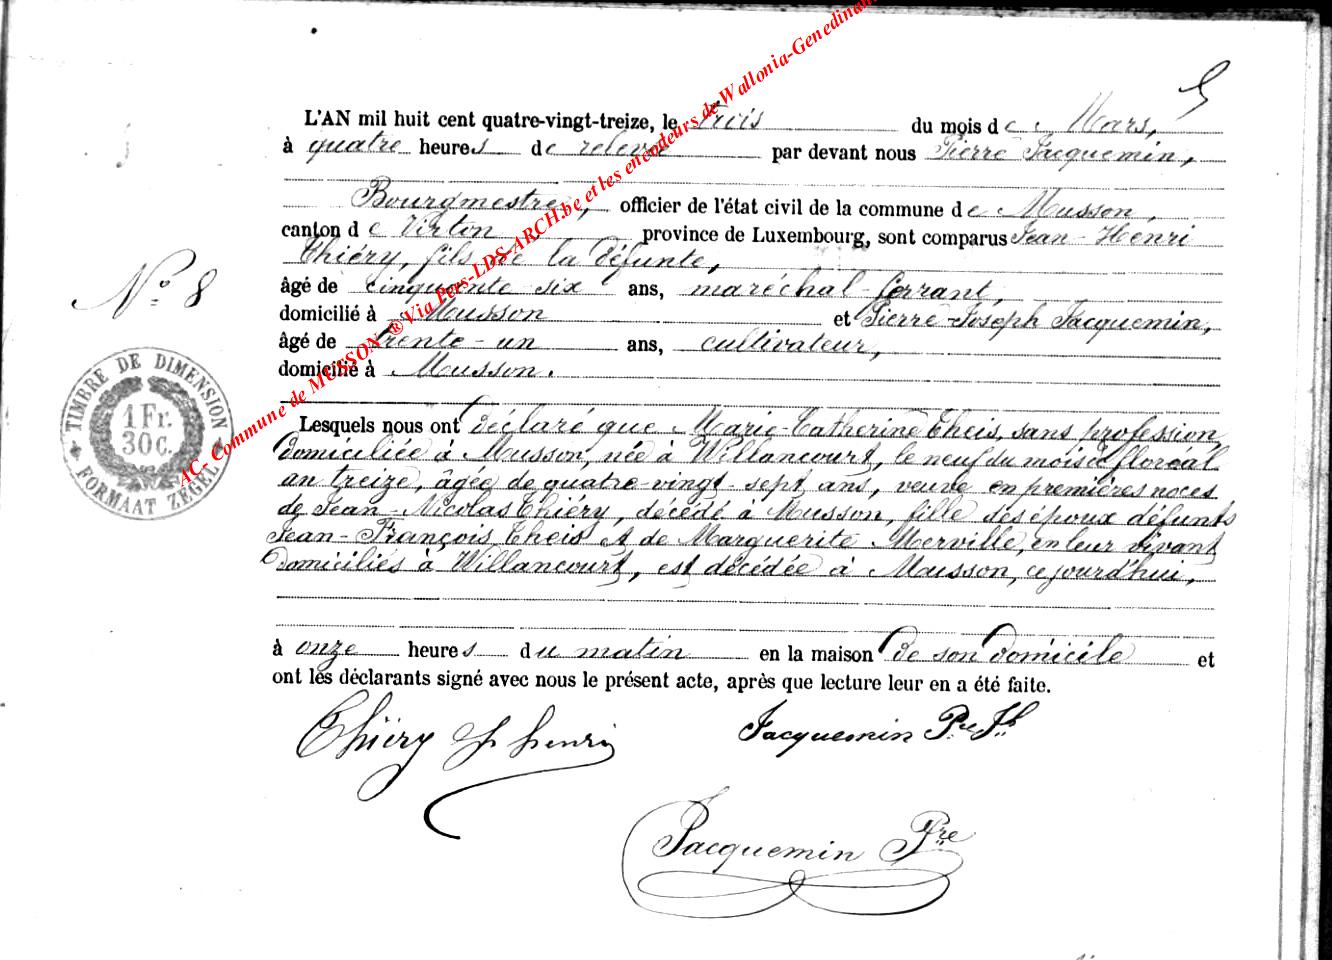 5
L'AN mil huit cent quatre-vingt-treize, le trois du mois de Mars,
à quatre heures de relevée par devant nous Pierre Jacquemin,
Bourgmestre, officier de l'état civil de la commune de Musson,
canton de Virton province de Luxembourg, sont comparus Jean-Henri
Thiéry, fils de la défunte,
âgé de cinquante six ans, maréchal-ferrant,
domicilié à Musson et Pierre-Joseph Jacquemin,
âgé de trente-un ans, cultivateur,
domicilié à Musson.
N° 8
TIMBRE DE DIMENSION
1 Fr.
30c.
FORMAAT ZEGEL
Lesquels nous ont déclaré que Marie-Catherine Theis, sans profession,
domiciliée à Musson, née à Willancourt, le neuf du mois de floréal
an treize, âgée de quatre-vingt-sept ans, veuve en premières noces
de Jean-Nicolas Thiéry, décédé à Musson, fille des époux défunts
Jean-François Theis et de Marguerite Merville, en leur vivant
domiciliés à Willancourt, est décédée à Musson, ce jourd'hui,
à onze heures du matin en la maison de son domicile et
ont les déclarants signé avec nous le présent acte, après que lecture leur en a été faite.
Thiéry J henri
Jacquemin Pre Jh
Jacquemin Pre
AC- Commune de MUSSON ® Via Pers-LDS-ARCH.be et les encodeurs de Wallonia-Genedinan